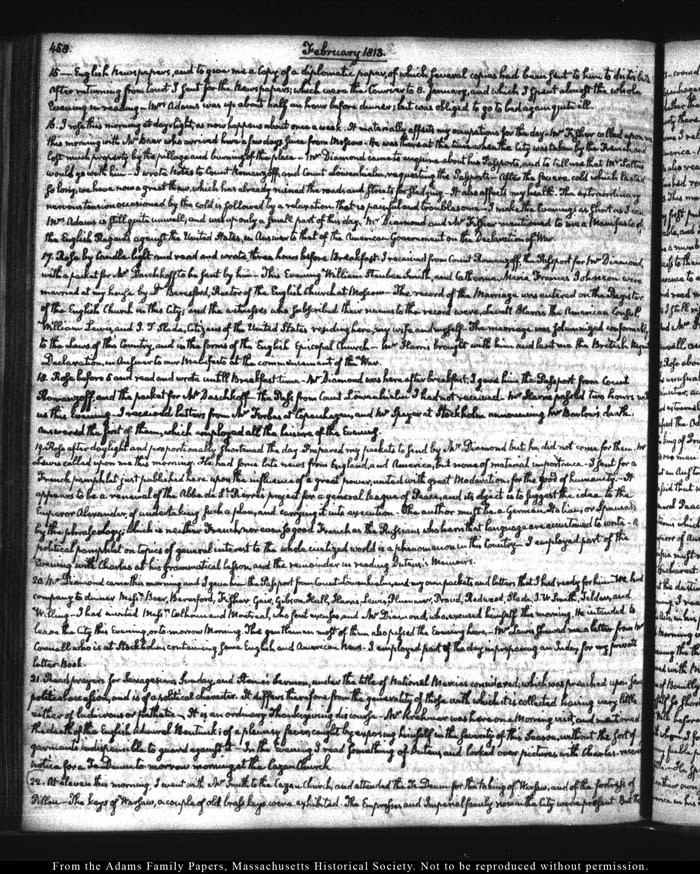 458.
February 1813.
15 — English Newspapers, and to give me a copy of a diplomatic paper, of which several copies had been sent to him to distribute
After returning from Court I sent for the Newspapers; which were the Courier to 8. January, and which I spent almost the whole
Evening in reading — Mrs Adams was up about half an hour before dinner; but was obliged to go to bed again quite ill.
16. I rose this morning at daylight, as now happens about once a week. It materially affects my occupations for the day — Mr Fisher called upon me
this morning with Mr Baer who arrived here a few days since from Moscow. He was there at the time when the City was taken by the French, and
lost much property by the pillage and burning of the place — Mr Diamond came to enquire about his Passports, and to tell me that Mr
would go with him — I wrote Notes to Count Romanzoff, and Count Löwenhielm, requesting the Passports — After the severe cold which lasted
so long, we have now a great thaw, which has already ruined the roads and Streets for sledging. It also affects my health. The extraordinary
nervous tension occasioned by the cold is followed by a relaxation that is painful and troublesome — I make the Evenings as short as I can
Mrs Adams is still quite unwell, and was up only a small part of this day. Mr Diamond and Mr Fisher mentioned to me a Manifesto of
the English Regent against the United States, in Answer to that of the American Government on the Declaration of War.
17. Rose by Candle-light and read and wrote three hours before Breakfast. I received from Count Romanzoff the Passport for Mr Diamond,
with a packet for Mr Daschkoff to be sent by him — This Evening William Steuben Smith, and Catherine Maria Frances Johnson were
married at my house by Dr Beresford, Rector of the English Church at Moscow — The record of the Marriage was entered on the Register
of the English Church in this City; and the witnesses who subscribed their names to the record were, Levett Harris the American Consul
William Lewis and I. T. Slade, Citizens of the United States residing here, my wife and myself. The marriage was solemnized conformably
to the laws of this Country, and in the forms of the English Episcopal Church — Mr Harris brought with him and lent me the British Regent's
Declaration, in Answer to our Manifesto at the commencement of the War.
18. Rose before 6 and read and wrote untill Breakfast time — Mr Diamond was here after breakfast; I gave him the Passport from Count
Romanzoff, and the packet for Mr Daschkoff — the Pass from Count Löwenhielm I had not received. Mr Harris passed two hours with
us this Evening — I received letters from Mr Forbes at Copenhagen, and Mr Speyer at Stockholm announcing Mr Barlow's death.
answered the first of them, which employed all the leisure of the Evening.
19. Rose after daylight and proportionally shortened the day. I prepared my packets to send by Mr Diamond but he did not come for them. Mr
Lewis called upon me this morning. He had some late news from England, and America, but none of material importance — I sent for a
French pamphlet just published here upon the influence of a great power, united with great Moderation, for the good of humanity — It
appears to be a renewal of the Abbé de St. Pierre's project for a general league of Peace, and its object is to suggest the idea to the
Emperor Alexander, of undertaking such a plan, and carrying it into execution. The author must be a German Italian, or Spaniard
by the phraseology; which is neither French, nor even so good French as the Russians who learn that language are accustomed to write — A
political pamphlet on topics of general interest to the whole civilized world is a phenomenon in this Country — I employed part of the
Evening with Charles at his grammatical lesson, and the remainder in reading Dutens's Memoirs.
20. Mr Diamond came this morning and I gave him the Passport from Count Löwenhielm, and my own packets and letters that I had ready for him — We had
company to dinner Messrs Baer, Beresford, Fisher, Gair, Gibson, Hall, Harris, Lewis, Plummer, Proud, Redwood, Slade, I. W. Smith, Tilden, and
Willing — I had invited Messrs Calhoun and Montreal, who sent excuses and Mr Diamond, who excused himself this morning. He intended to
leave the City this Evening, or tomorrow Morning. The gentlemen most of them also passed the Evening here — Mr Lewis shewed me a letter from Mr
Connell who is at Stockholm, containing some English and American News. I employed part of the day in preparing an Index, for my private
letter-Book.
21. I read prayers for Sexagesima Sunday, and Sterne's Sermon, under the title of National Mercies considered, which was preached upon some
political occasion, and is of a political character. It differs therefore from the generality of those with which it is collected having very little
either of ludicrous or pathetic — It is an ordinary Thanksgiving discourse — Mr Krehmer was here on a Morning visit, and mentioned
the death of the English Admiral Bentinck; of a fever, caught by exposing himself in the severity of this Season, without the sort of
garments indispensible to guard against it — In the Evening I read something of Dutens, and looked over pictures with Charles. received
notice for a Te Deum tomorrow morning at the Cazan Church.
22. At eleven this morning, I went with Mr Smith to the Cazan Church, and attended the Te Deum for the taking of Warsaw, and of the fortress of
Pillau — The keys of Warsaw, a couple of old brass keys were exhibited. The Empresses and Imperial family now in the City were present. But the
From the Adams Family Papers, Massachusetts Historical Society. Not to be reproduced without permission.